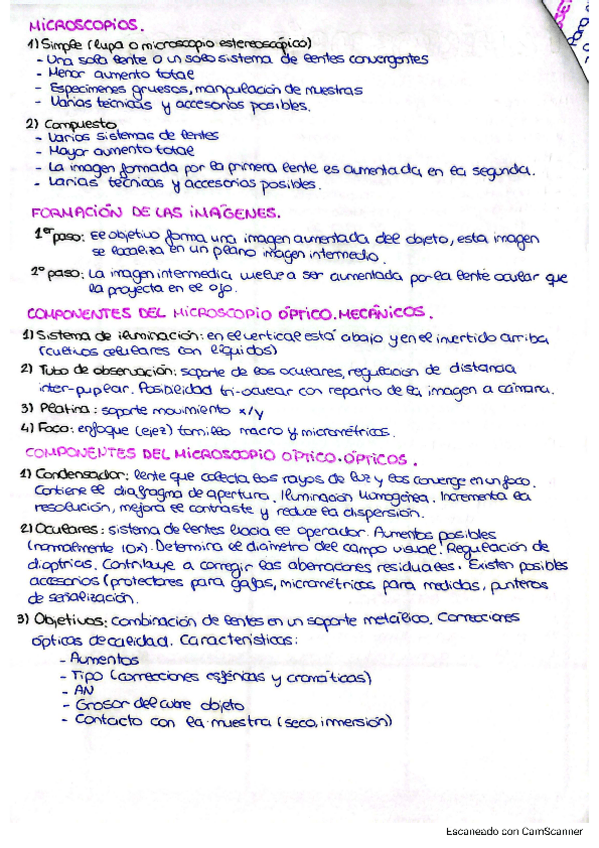 MICROSCOPIOS.
1) Simple (lupa o microscopio estereoscópico)
- Una sola lente o un solo sistema de lentes convergentes
- Menor aumento total
- Especímenes gruesos, manipulación de muestras
- Varias técnicas y accesorios posibles.
2) Compuesto
- Varios sistemas de lentes
- Mayor aumento total
- La imagen formada por la primera lente es aumentada en la segunda.
- Varias técnicas y accesorios posibles.
FORMACIÓN DE LAS IMÁGENES.
1er paso: El objetivo forma una imagen aumentada del objeto, esta imagen
se localiza en un plano imagen intermedio.
2º paso: La imagen intermedia vuelve a ser aumentada por la lente ocular que
la proyecta en el ojo.
COMPONENTES DEL MICROSCOPIO ÓPTICO. MECÁNICOS.
1) Sistema de iluminación: en el vertical está abajo y en el invertido arriba
(cultivos celulares con líquidos)
2) Tubo de observación: soporte de los oculares, regulación de distancia
inter-pupilar. Posibilidad tri-ocular con reparto de la imagen a cámara.
3) Platina: soporte movimiento x/y
4) Foco: enfoque (eje z) tornillo macro y micrométricos.
COMPONENTES DEL MICROSCOPIO OPTICO. ÓPTICOS.
1) Condensador: lente que colecta los rayos de luz y los converge en un foco.
Contiene el diafragma de apertura. Iluminación homogénea. Incrementa la
resolución, mejora el contraste y reduce la dispersión.
2) Oculares: sistema de lentes hacia el operador. Aumentos posibles
(normalmente 10x). Determina el diámetro del campo visual. Regulación de
dioptrías. Contribuye a corregir las aberraciones residuales. Existen posibles
accesorios (protectores para gafas, micrométricos para medidas, punteros
de señalización.
3) Objetivos: Combinación de lentes en un soporte metálico. Correcciones
ópticas de calidad. Características:
- Aumentos
- Tipo (correcciones esféricas y cromáticas)
- AN
- Grosor del cubre objeto
- Contacto con la muestra (seco, inmersión)
Escaneado con CamScanner